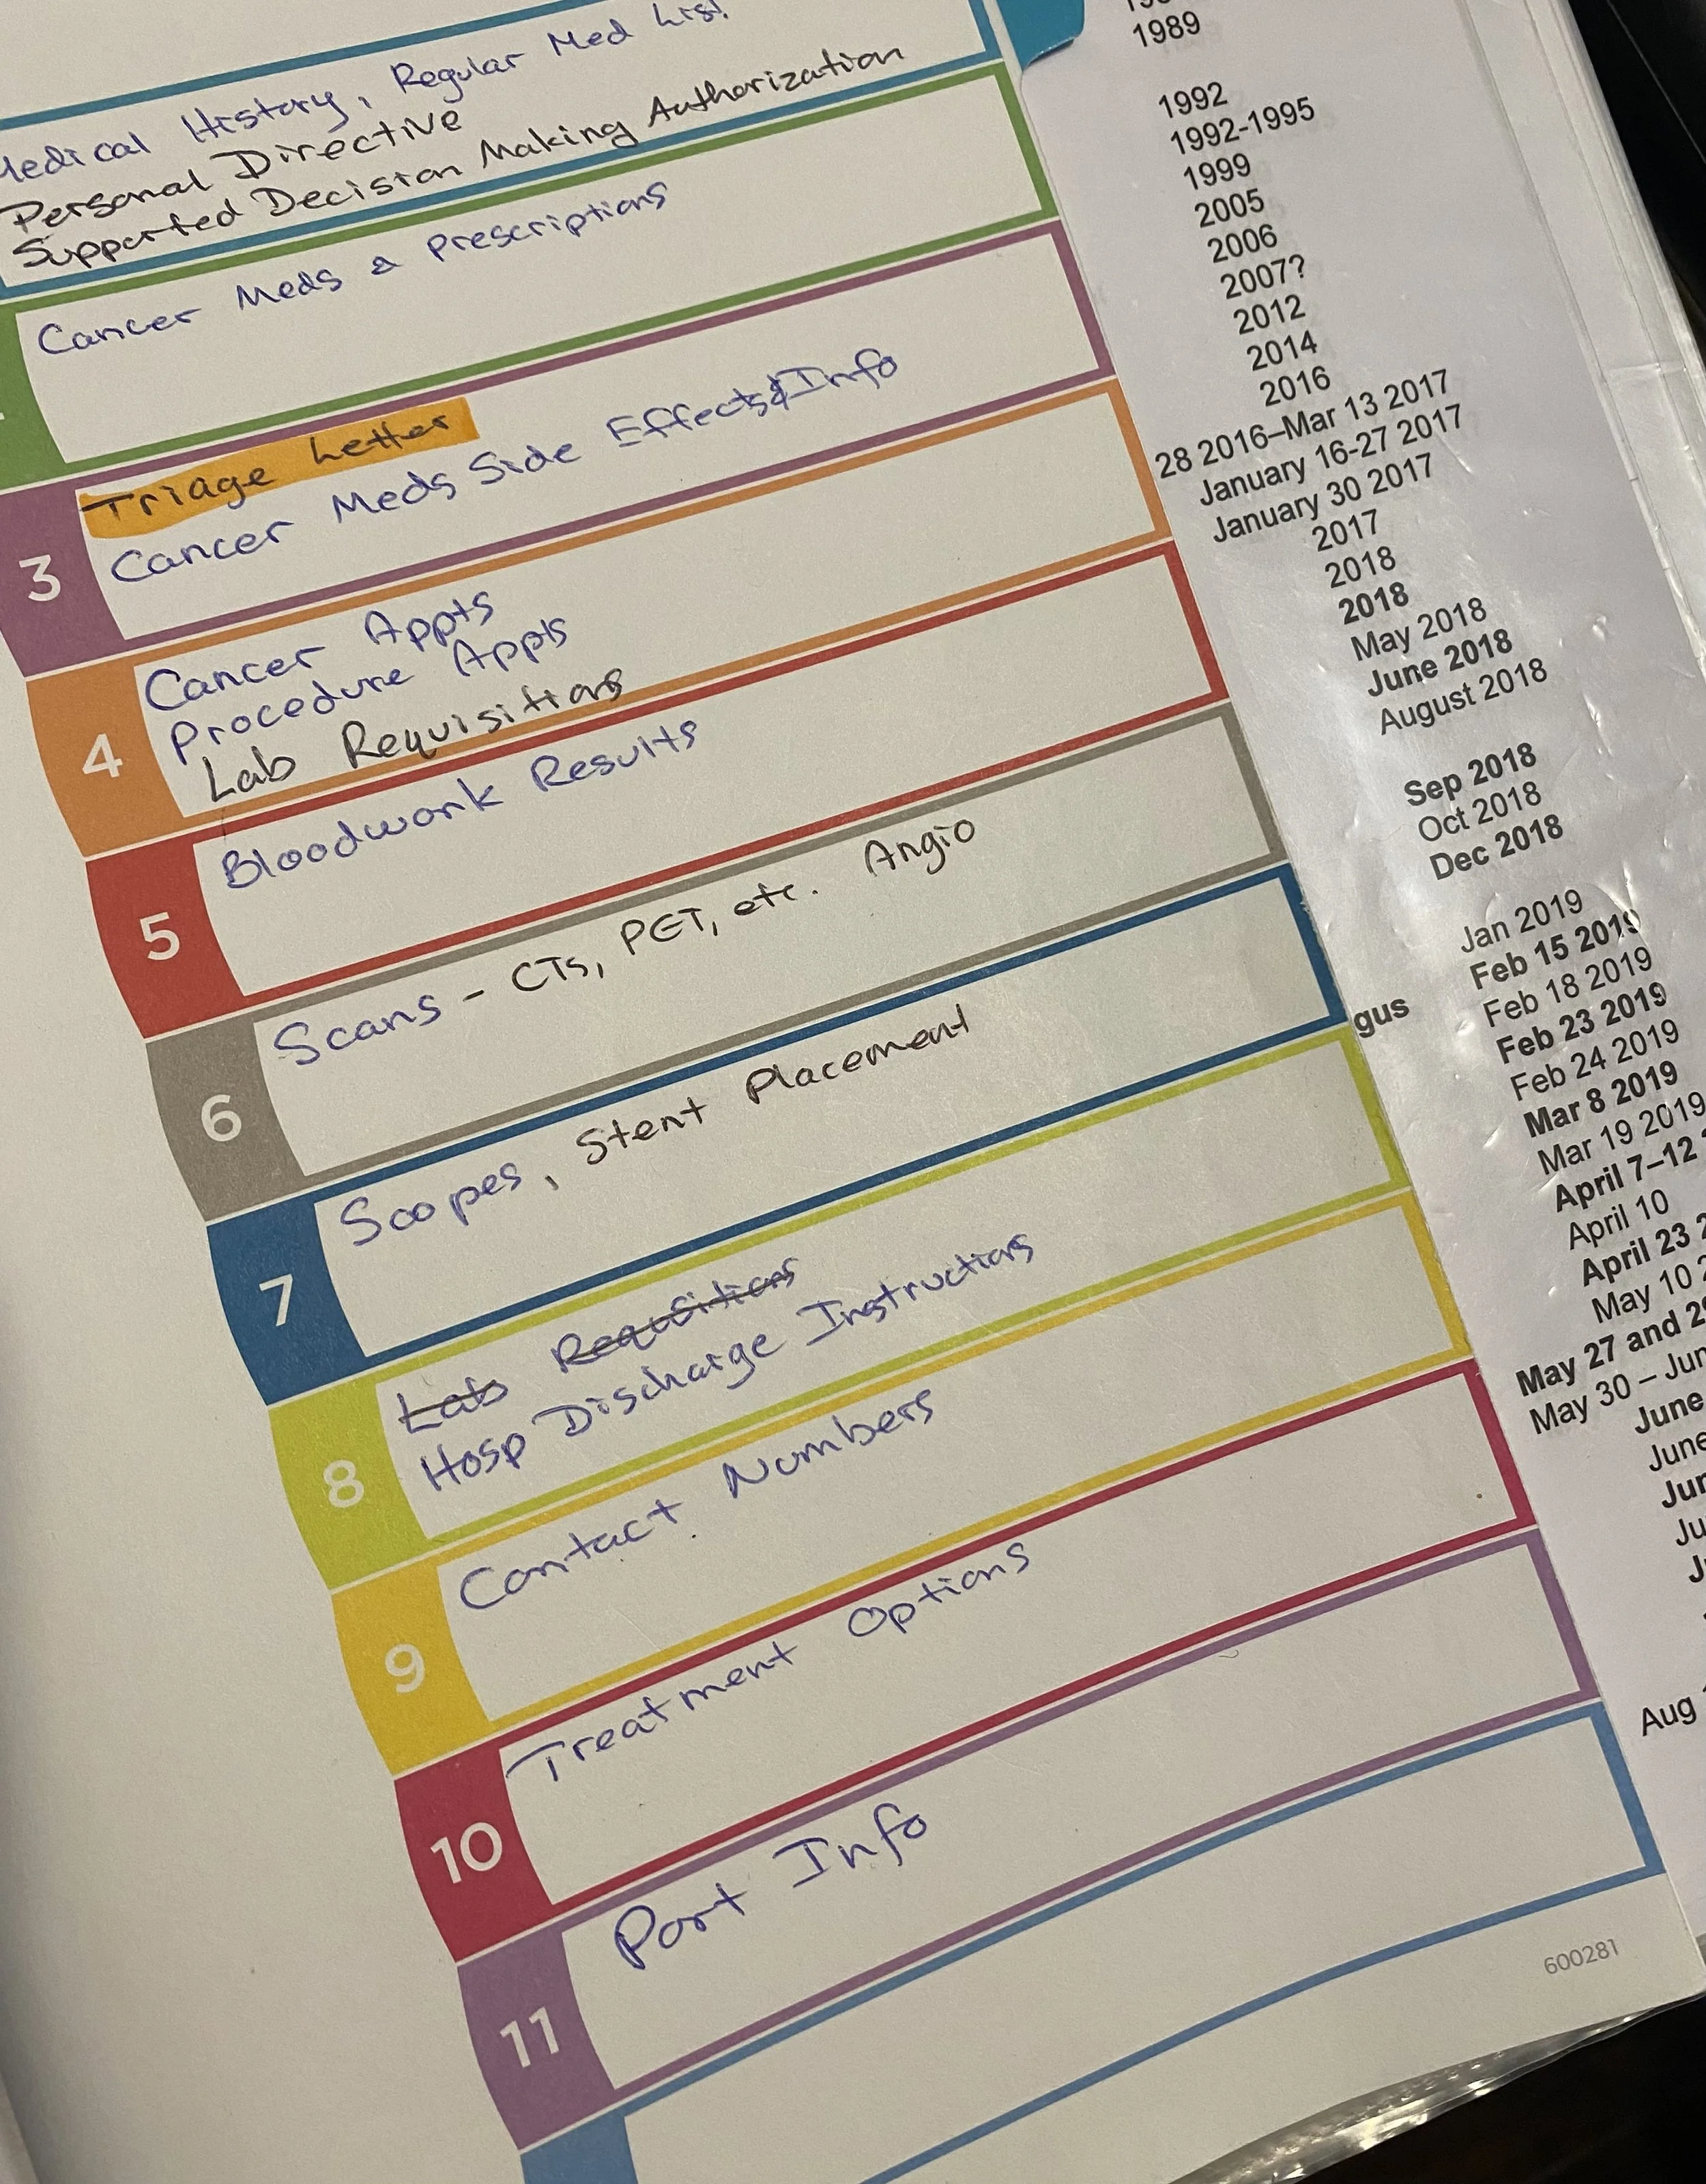 Medical History, Regular Med List
Personal Directive
Supported Decision Making Authorization
Cancer Meds & Prescriptions
3
Triage Letter
Cancer Meds Side Effects & Info
4
Cancer Appts
Procedure Appts
Lab Requisitions
5
Bloodwork Results
6
Scans - CTs, PET, etc. Angio
7
Scopes, Stent Placement
8
Lab Requisitions
Hosp Discharge Instructions
9
Contact Numbers
10
Treatment Options
11
Port Info
600281
1989
1992
1992-1995
1999
2005
2006
2007?
2012
2014
2016
28 2016–Mar 13 2017
January 16-27 2017
January 30 2017
2017
2018
2018
May 2018
June 2018
August 2018
Sep 2018
Oct 2018
Dec 2018
Jan 2019
Feb 15 2019
Feb 18 2019
gus Feb 23 2019
Feb 24 2019
Mar 8 2019
Mar 19 2019
April 7–12
April 10
April 23
May 10
May 27 and
May 30 – Jun
June
June
Jun
Ju
Aug